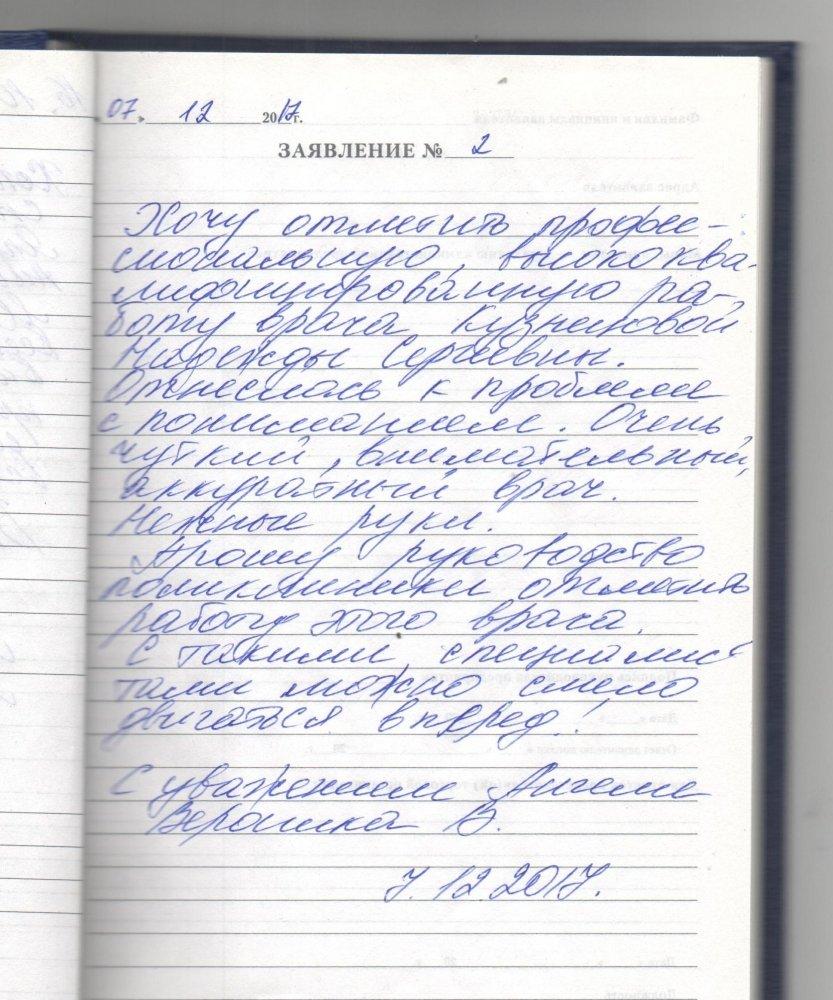 07. 12 2017г.
ЗАЯВЛЕНИЕ № 2
Хочу отметить профес-
сиональную, высококва-
лифицированную ра-
боту врача Кузнецовой
Надежды Сергеевны.
Отнеслась к проблеме
с пониманием. Очень
чуткий, внимательный,
аккуратный врач.
Нежные руки.
Прошу руководство
поликлиники отметить
работу этого врача.
С такими специалис
тами можно смело
двигаться вперед!
С уважением
Вероника В.
7.12.2017.